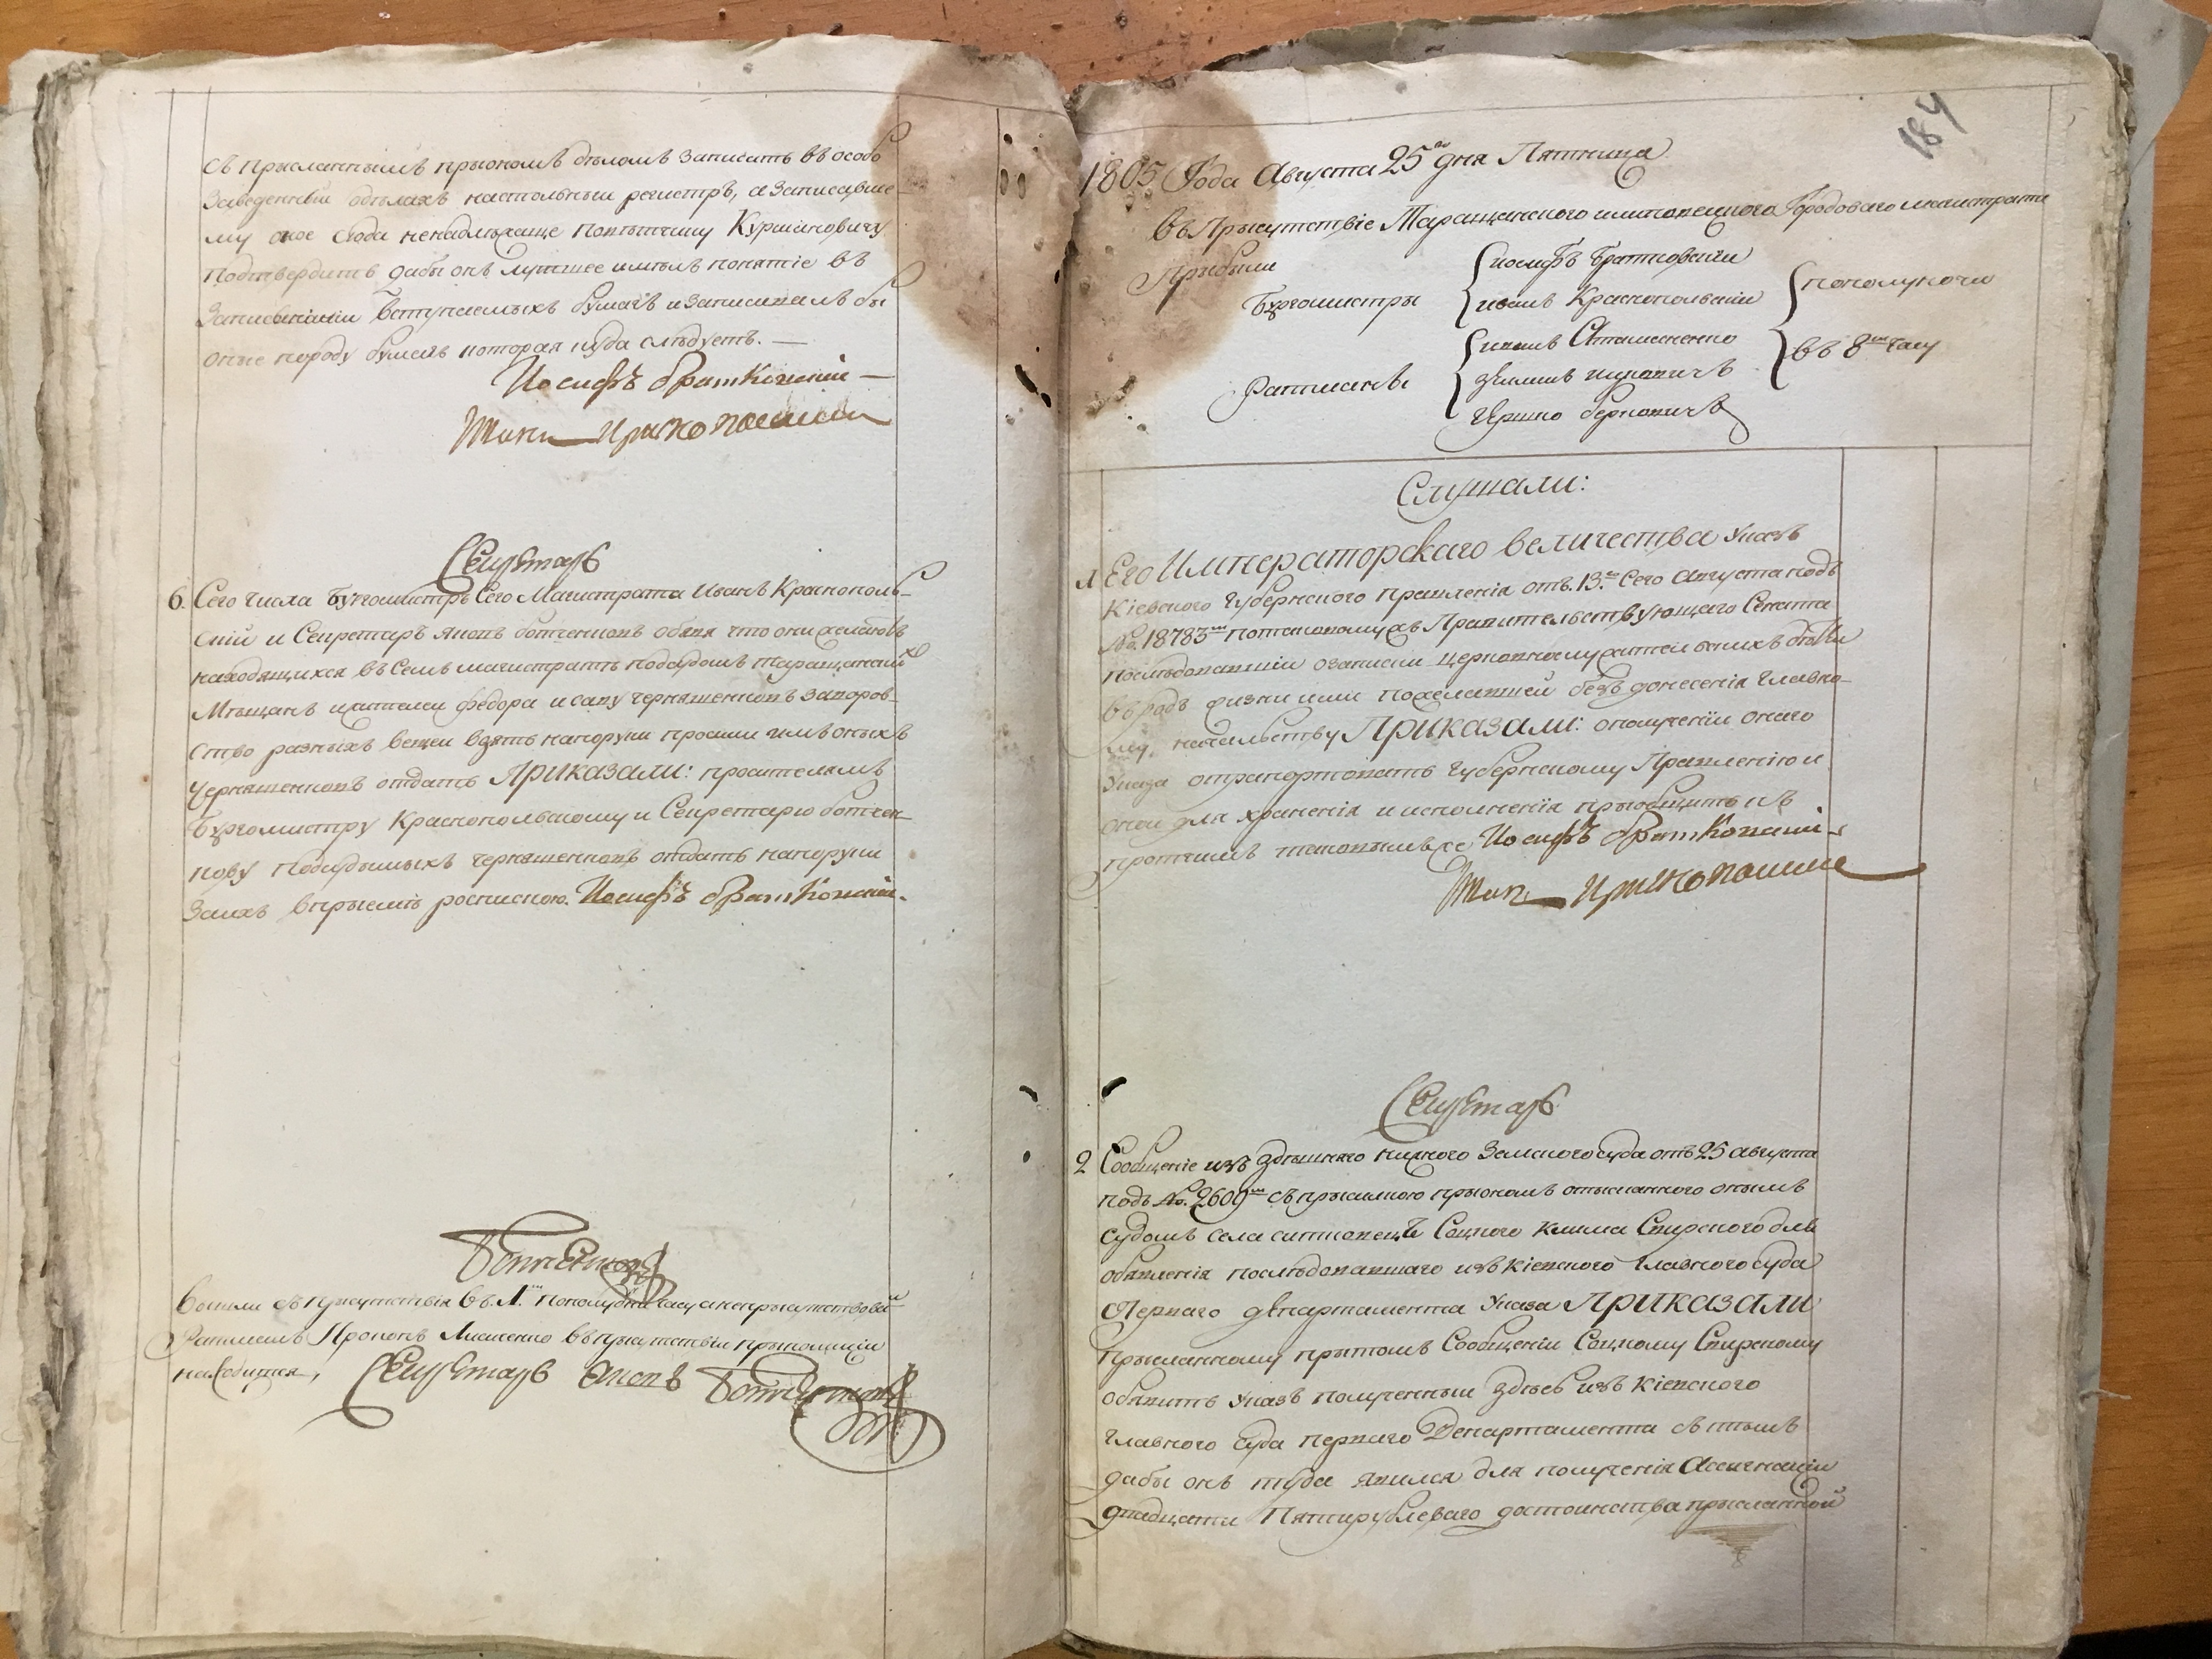 съ прысланнымъ прыономъ дѣломъ записать въ особо
заведенный одѣлахъ настольный регистръ, а записавше-
му оное сюда ненадлѣжаще Куршановичу
подтвердить дабы онъ лутшее имѣлъ понятіе въ
записываніи вступаемыхъ бумагъ и записывалъ бы
оные породу бумагъ которая куда слѣдуетъ. —
Иосифъ братковский —
Секретарь
6. Сего числа Бургомистръ Сего Магистрата Иванъ Краснополь-
скій и Секретарь Яковъ ботвенковъ объяв что они желаютъ
находящихся въ Семъ магистратѣ подсудомъ таращанскихъ
Мѣщанъ жителей федора и саву чернашенковъ заворов-
ство разныхъ вещей взять напоруки просили имъ оныхъ
чернашенковъ отдать Приказали: просителямъ
Бургомистру Краснопольскому и Секретарю ботвен-
кову подсудимыхъ чернашенковъ отдать напоруки
заихъ впрыемѣ роспискою. Иосифъ братковский.
вышли съ присутствія въ 1. пополудни часу анеприсутствовалъ
Ратманъ Прокопъ Лисиенко въ
находится, Секретарь Яковъ Ботвенковъ
184
1805 Года Августа 25го дня Пятница
въ Прысутствіе Таращанского Городоваго магистрата
Прибыли
Бургомистры
иосифъ Братковский
иванъ Краснопольский
пополуночи
Ратманы
въ 8мъ часу
Слушали:
1 Его Императорскаго величества Указъ
Кіевского Губернского правленія отъ 13го Сего Августа подъ
No. 18783мъ потаковомужъ Правительствующаго Сената
послѣдовавшій озаписки
безъ донесенія главно-
му начальству Приказали: ополученіи оного
Указа отрапортовать Губернскому Правленію и
оной для храненія и исполненія прыобщить къ
протчимъ таковымъже Иосифъ братковский
Секретарь
2 Сообщеніе изъ здѣшняго нижнего Земского суда отъ 25 августа
подъ No. 2609мъ съ прысылкою прыономъ отысканного онымъ
судомъ села ситковецъ Соцкого Клима Свирского для
объявленія послѣдовавшаго изъ кіевского главного суда
Перваго департамента Указа Приказали
прысланному прытомъ Сообщеніи Соцкому Свирскому
объявить Указъ полученный здѣсь изъ кіевского
главного суда перваго Департамента съ тѣмъ
дабы онъ туда явился для полученія Ассигнаціи
двадцати Пятирублеваго достоинства прысланной